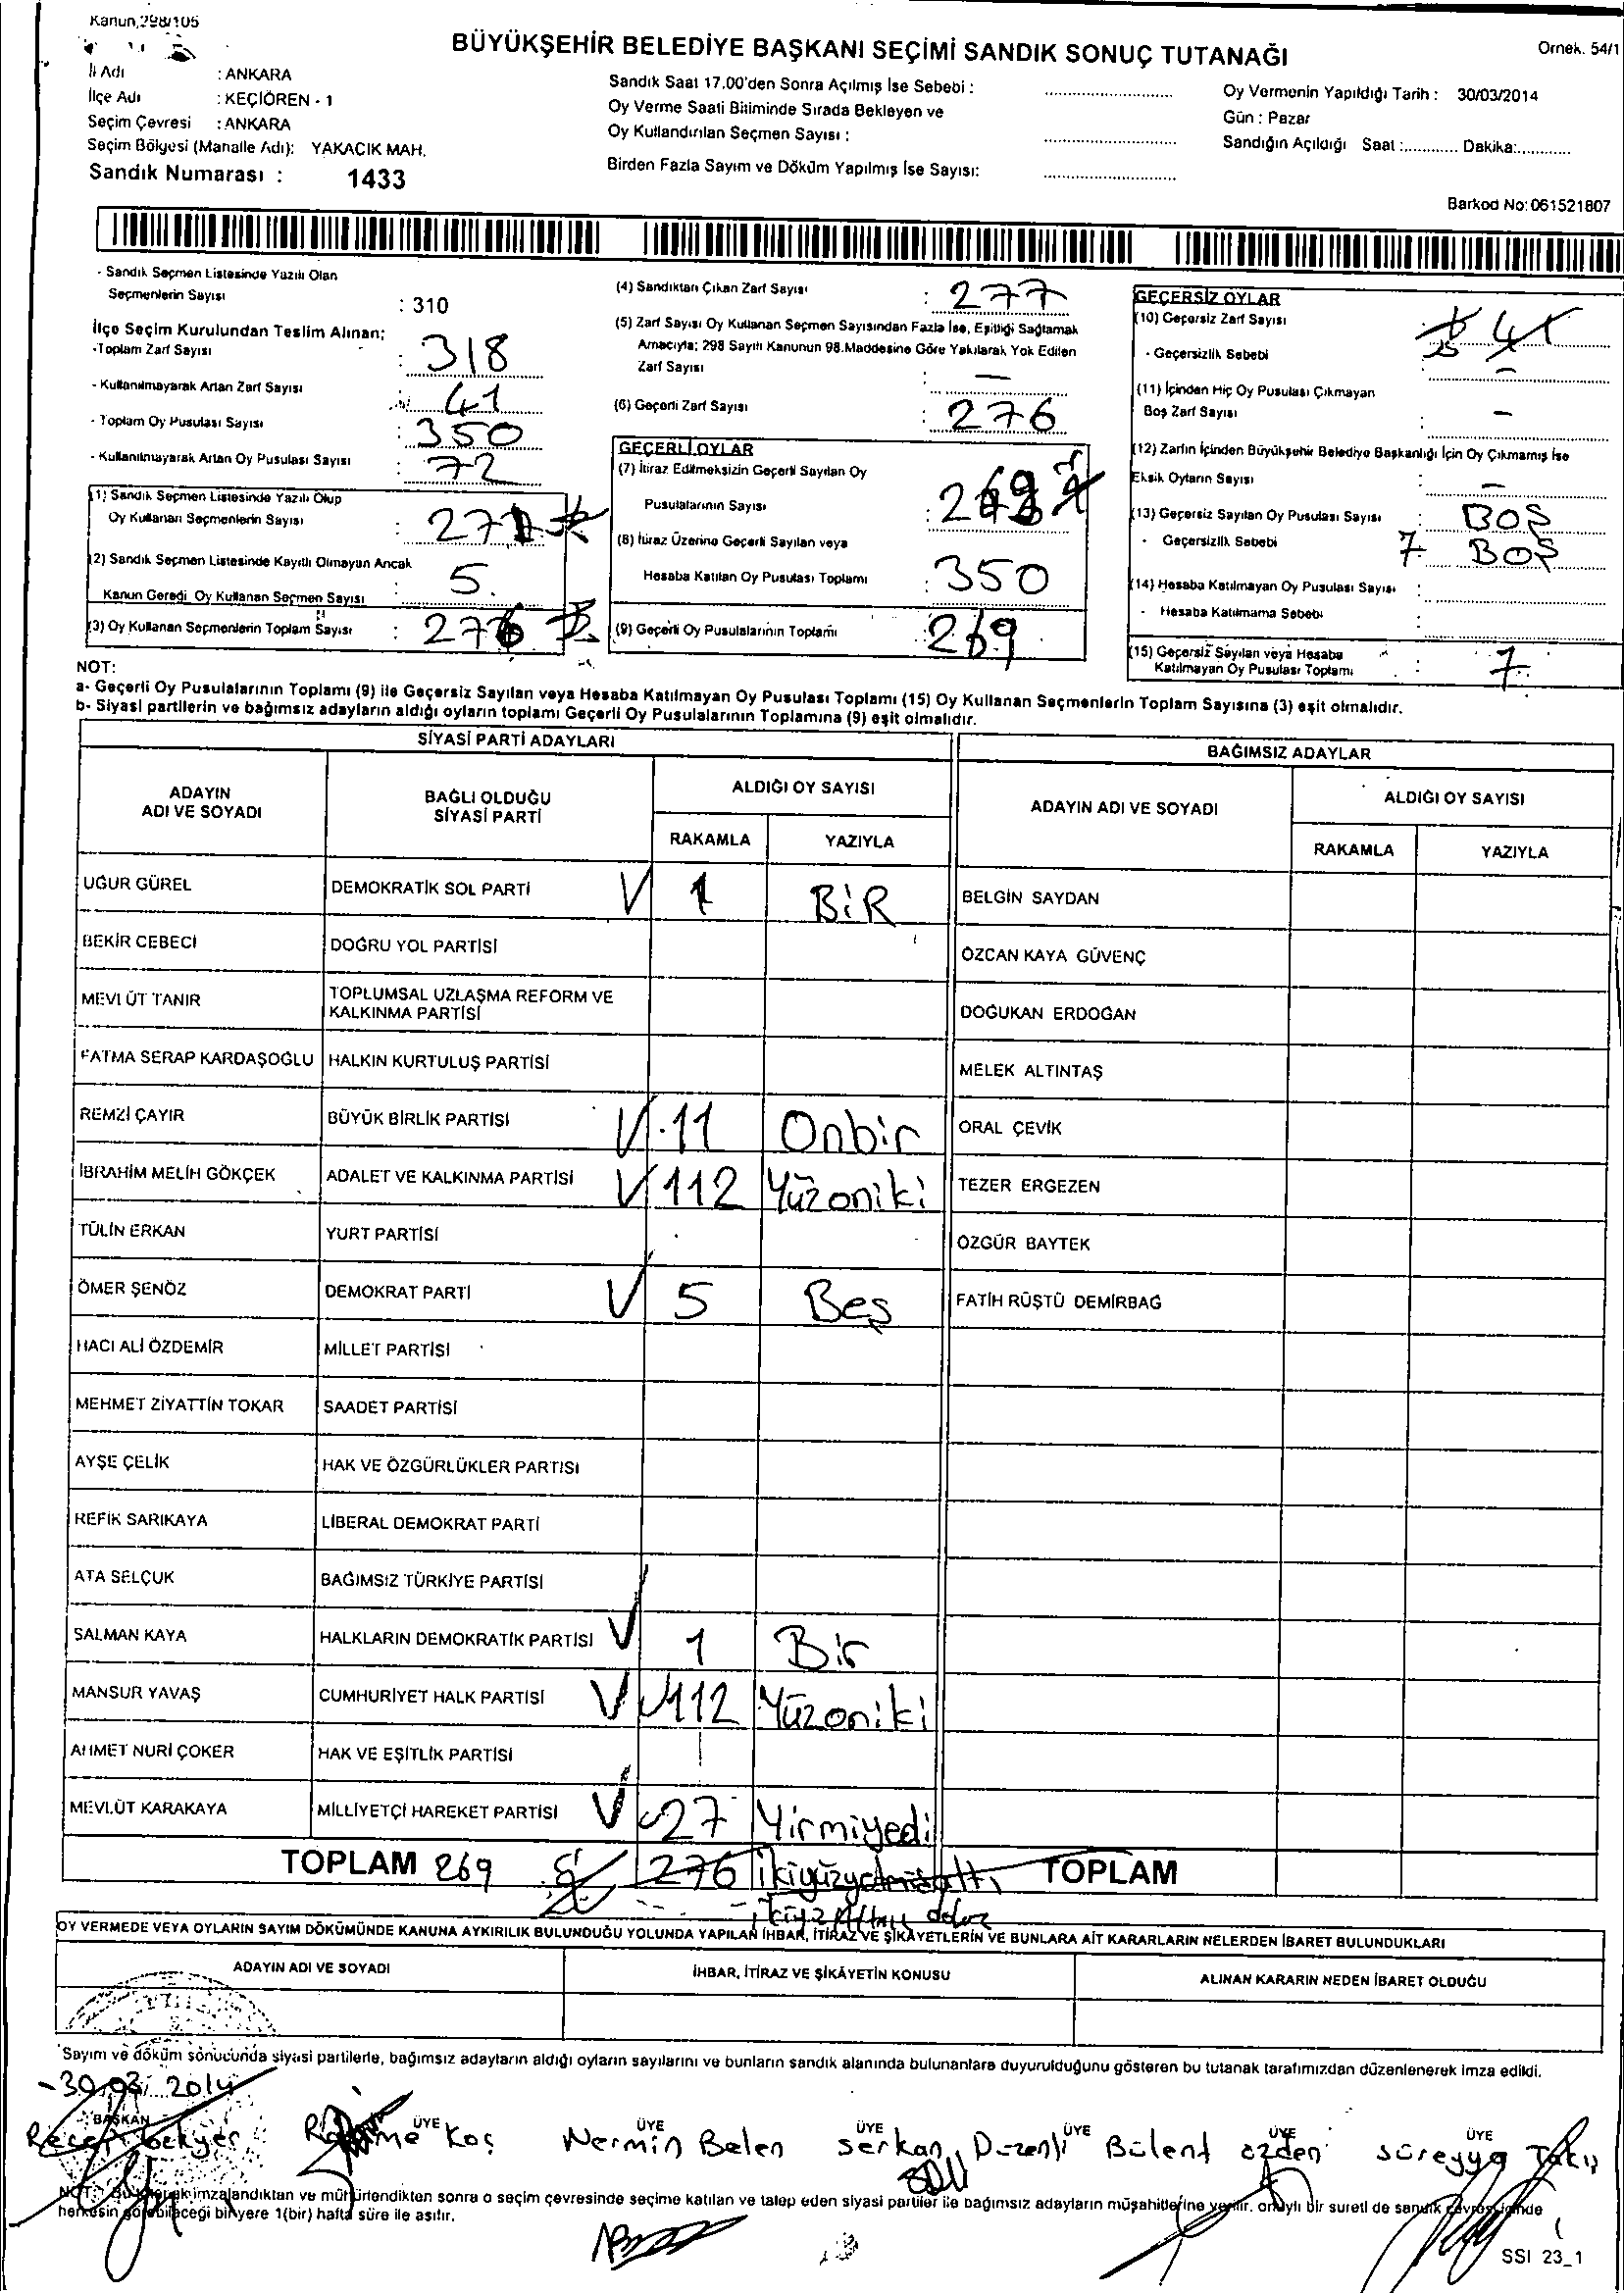 Kanun,298/105
BÜYÜKŞEHİR BELEDİYE BAŞKANI SEÇİMİ SANDIK SONUÇ TUTANAĞI
Örnek. 54/1
İl Adı : ANKARA
İlçe Adı : KEÇİÖREN - 1
Seçim Çevresi : ANKARA
Seçim Bölgesi (Mahalle Adı): YAKACIK MAH.
Sandık Numarası : 1433
Sandık Saat 17.00'den Sonra Açılmış İse Sebebi :
Oy Verme Saati Bitiminde Sırada Bekleyen ve
Oy Kullandırılan Seçmen Sayısı :
Birden Fazla Sayım ve Döküm Yapılmış İse Sayısı:
Oy Vermenin Yapıldığı Tarih : 30/03/2014
Gün : Pazar
Sandığın Açıldığı Saat :............ Dakika:............
Barkod No: 061521807
- Sandık Seçmen Listesinde Yazılı Olan
Seçmenlerin Sayısı : 310
İlçe Seçim Kurulundan Teslim Alınan;
-Toplam Zarf Sayısı : 318
- Kullanılmayarak Artan Zarf Sayısı : 41
- Toplam Oy Pusulası Sayısı : 350
- Kullanılmayarak Artan Oy Pusulası Sayısı : 72
(1) Sandık Seçmen Listesinde Yazılı Olup
Oy Kullanan Seçmenlerin Sayısı : 271
(2) Sandık Seçmen Listesinde Kayıtlı Olmayan Ancak
Kanun Gereği Oy Kullanan Seçmen Sayısı : 5
(3) Oy Kullanan Seçmenlerin Toplam Sayısı : 276
(4) Sandıktan Çıkan Zarf Sayısı : 277
(5) Zarf Sayısı Oy Kullanan Seçmen Sayısından Fazla İse, Eşitliği Sağlamak
Amacıyla; 298 Sayılı Kanunun 98.Maddesine Göre Yakılarak Yok Edilen
Zarf Sayısı : —
(6) Geçerli Zarf Sayısı : 276
GEÇERLİ OYLAR
(7) İtiraz Edilmeksizin Geçerli Sayılan Oy
Pusulalarının Sayısı : 269
(8) İtiraz Üzerine Geçerli Sayılan veya
Hesaba Katılan Oy Pusulası Toplamı : 350
(9) Geçerli Oy Pusulalarının Toplamı : 269
GEÇERSİZ OYLAR
(10) Geçersiz Zarf Sayısı
- Geçersizlik Sebebi : —
(11) İçinden Hiç Oy Pusulası Çıkmayan
Boş Zarf Sayısı : —
(12) Zarfın İçinden Büyükşehir Belediye Başkanlığı İçin Oy Çıkmamış İse
Eksik Oyların Sayısı : —
(13) Geçersiz Sayılan Oy Pusulası Sayısı : BOŞ
- Geçersizlik Sebebi : 7 BOŞ
(14) Hesaba Katılmayan Oy Pusulası Sayısı :
- Hesaba Katılmama Sebebi :
(15) Geçersiz Sayılan veya Hesaba
Katılmayan Oy Pusulası Toplamı : 7
NOT:
a- Geçerli Oy Pusulalarının Toplamı (9) ile Geçersiz Sayılan veya Hesaba Katılmayan Oy Pusulası Toplamı (15) Oy Kullanan Seçmenlerin Toplam Sayısına (3) eşit olmalıdır.
b- Siyasi partilerin ve bağımsız adayların aldığı oyların toplamı Geçerli Oy Pusulalarının Toplamına (9) eşit olmalıdır.
SİYASİ PARTİ ADAYLARI
BAĞIMSIZ ADAYLAR
ADAYIN ADI VE SOYADI
BAĞLI OLDUĞU SİYASİ PARTİ
ALDIĞI OY SAYISI
RAKAMLA YAZIYLA
ADAYIN ADI VE SOYADI
ALDIĞI OY SAYISI
RAKAMLA YAZIYLA
UĞUR GÜREL DEMOKRATİK SOL PARTİ 1 BİR BELGİN SAYDAN
BEKİR CEBECİ DOĞRU YOL PARTİSİ ÖZCAN KAYA GÜVENÇ
MEVLÜT TANIR TOPLUMSAL UZLAŞMA REFORM VE KALKINMA PARTİSİ DOĞUKAN ERDOĞAN
FATMA SERAP KARDAŞOĞLU HALKIN KURTULUŞ PARTİSİ MELEK ALTINTAŞ
REMZİ ÇAYIR BÜYÜK BİRLİK PARTİSİ 11 Onbir ORAL ÇEVİK
İBRAHİM MELİH GÖKÇEK ADALET VE KALKINMA PARTİSİ 112 Yüzoniki TEZER ERGEZEN
TÜLİN ERKAN YURT PARTİSİ ÖZGÜR BAYTEK
ÖMER ŞENÖZ DEMOKRAT PARTİ 5 Beş FATİH RÜŞTÜ DEMİRBAĞ
HACI ALİ ÖZDEMİR MİLLET PARTİSİ
MEHMET ZİYATTİN TOKAR SAADET PARTİSİ
AYŞE ÇELİK HAK VE ÖZGÜRLÜKLER PARTİSİ
REFİK SARIKAYA LİBERAL DEMOKRAT PARTİ
ATA SELÇUK BAĞIMSIZ TÜRKİYE PARTİSİ
SALMAN KAYA HALKLARIN DEMOKRATİK PARTİSİ 1 Bir
MANSUR YAVAŞ CUMHURİYET HALK PARTİSİ 112 Yüzoniki
AHMET NURİ ÇOKER HAK VE EŞİTLİK PARTİSİ
MEVLÜT KARAKAYA MİLLİYETÇİ HAREKET PARTİSİ 27 Yirmiyedi
TOPLAM 269 276 TOPLAM
OY VERMEDE VEYA OYLARIN SAYIM DÖKÜMÜNDE KANUNA AYKIRILIK BULUNDUĞU YOLUNDA YAPILAN İHBAR, İTİRAZ VE ŞİKÂYETLERİN VE BUNLARA AİT KARARLARIN NELERDEN İBARET BULUNDUKLARI
ADAYIN ADI VE SOYADI İHBAR, İTİRAZ VE ŞİKÂYETİN KONUSU ALINAN KARARIN NEDEN İBARET OLDUĞU
Sayım ve döküm sonucunda siyasi partilerle, bağımsız adayların aldığı oyların sayılarını ve bunların sandık alanında bulunanlara duyurulduğunu gösteren bu tutanak tarafımızdan düzenlenerek imza edildi.
30.03.2014
BAŞKAN ÜYE ÜYE ÜYE ÜYE ÜYE ÜYE
Koç Nermin Belen Serkan Düzenli Bülent özden Süreyya
NOT: Bu tutanak imzalandıktan ve mühürlendikten sonra o seçim çevresinde seçime katılan ve talep eden siyasi partiler ile bağımsız adayların müşahitlerine verilir. onaylı bir sureti de sandık çevresi içinde
herkesin görebileceği bir yere 1(bir) hafta süre ile asılır.
SSI 23_1